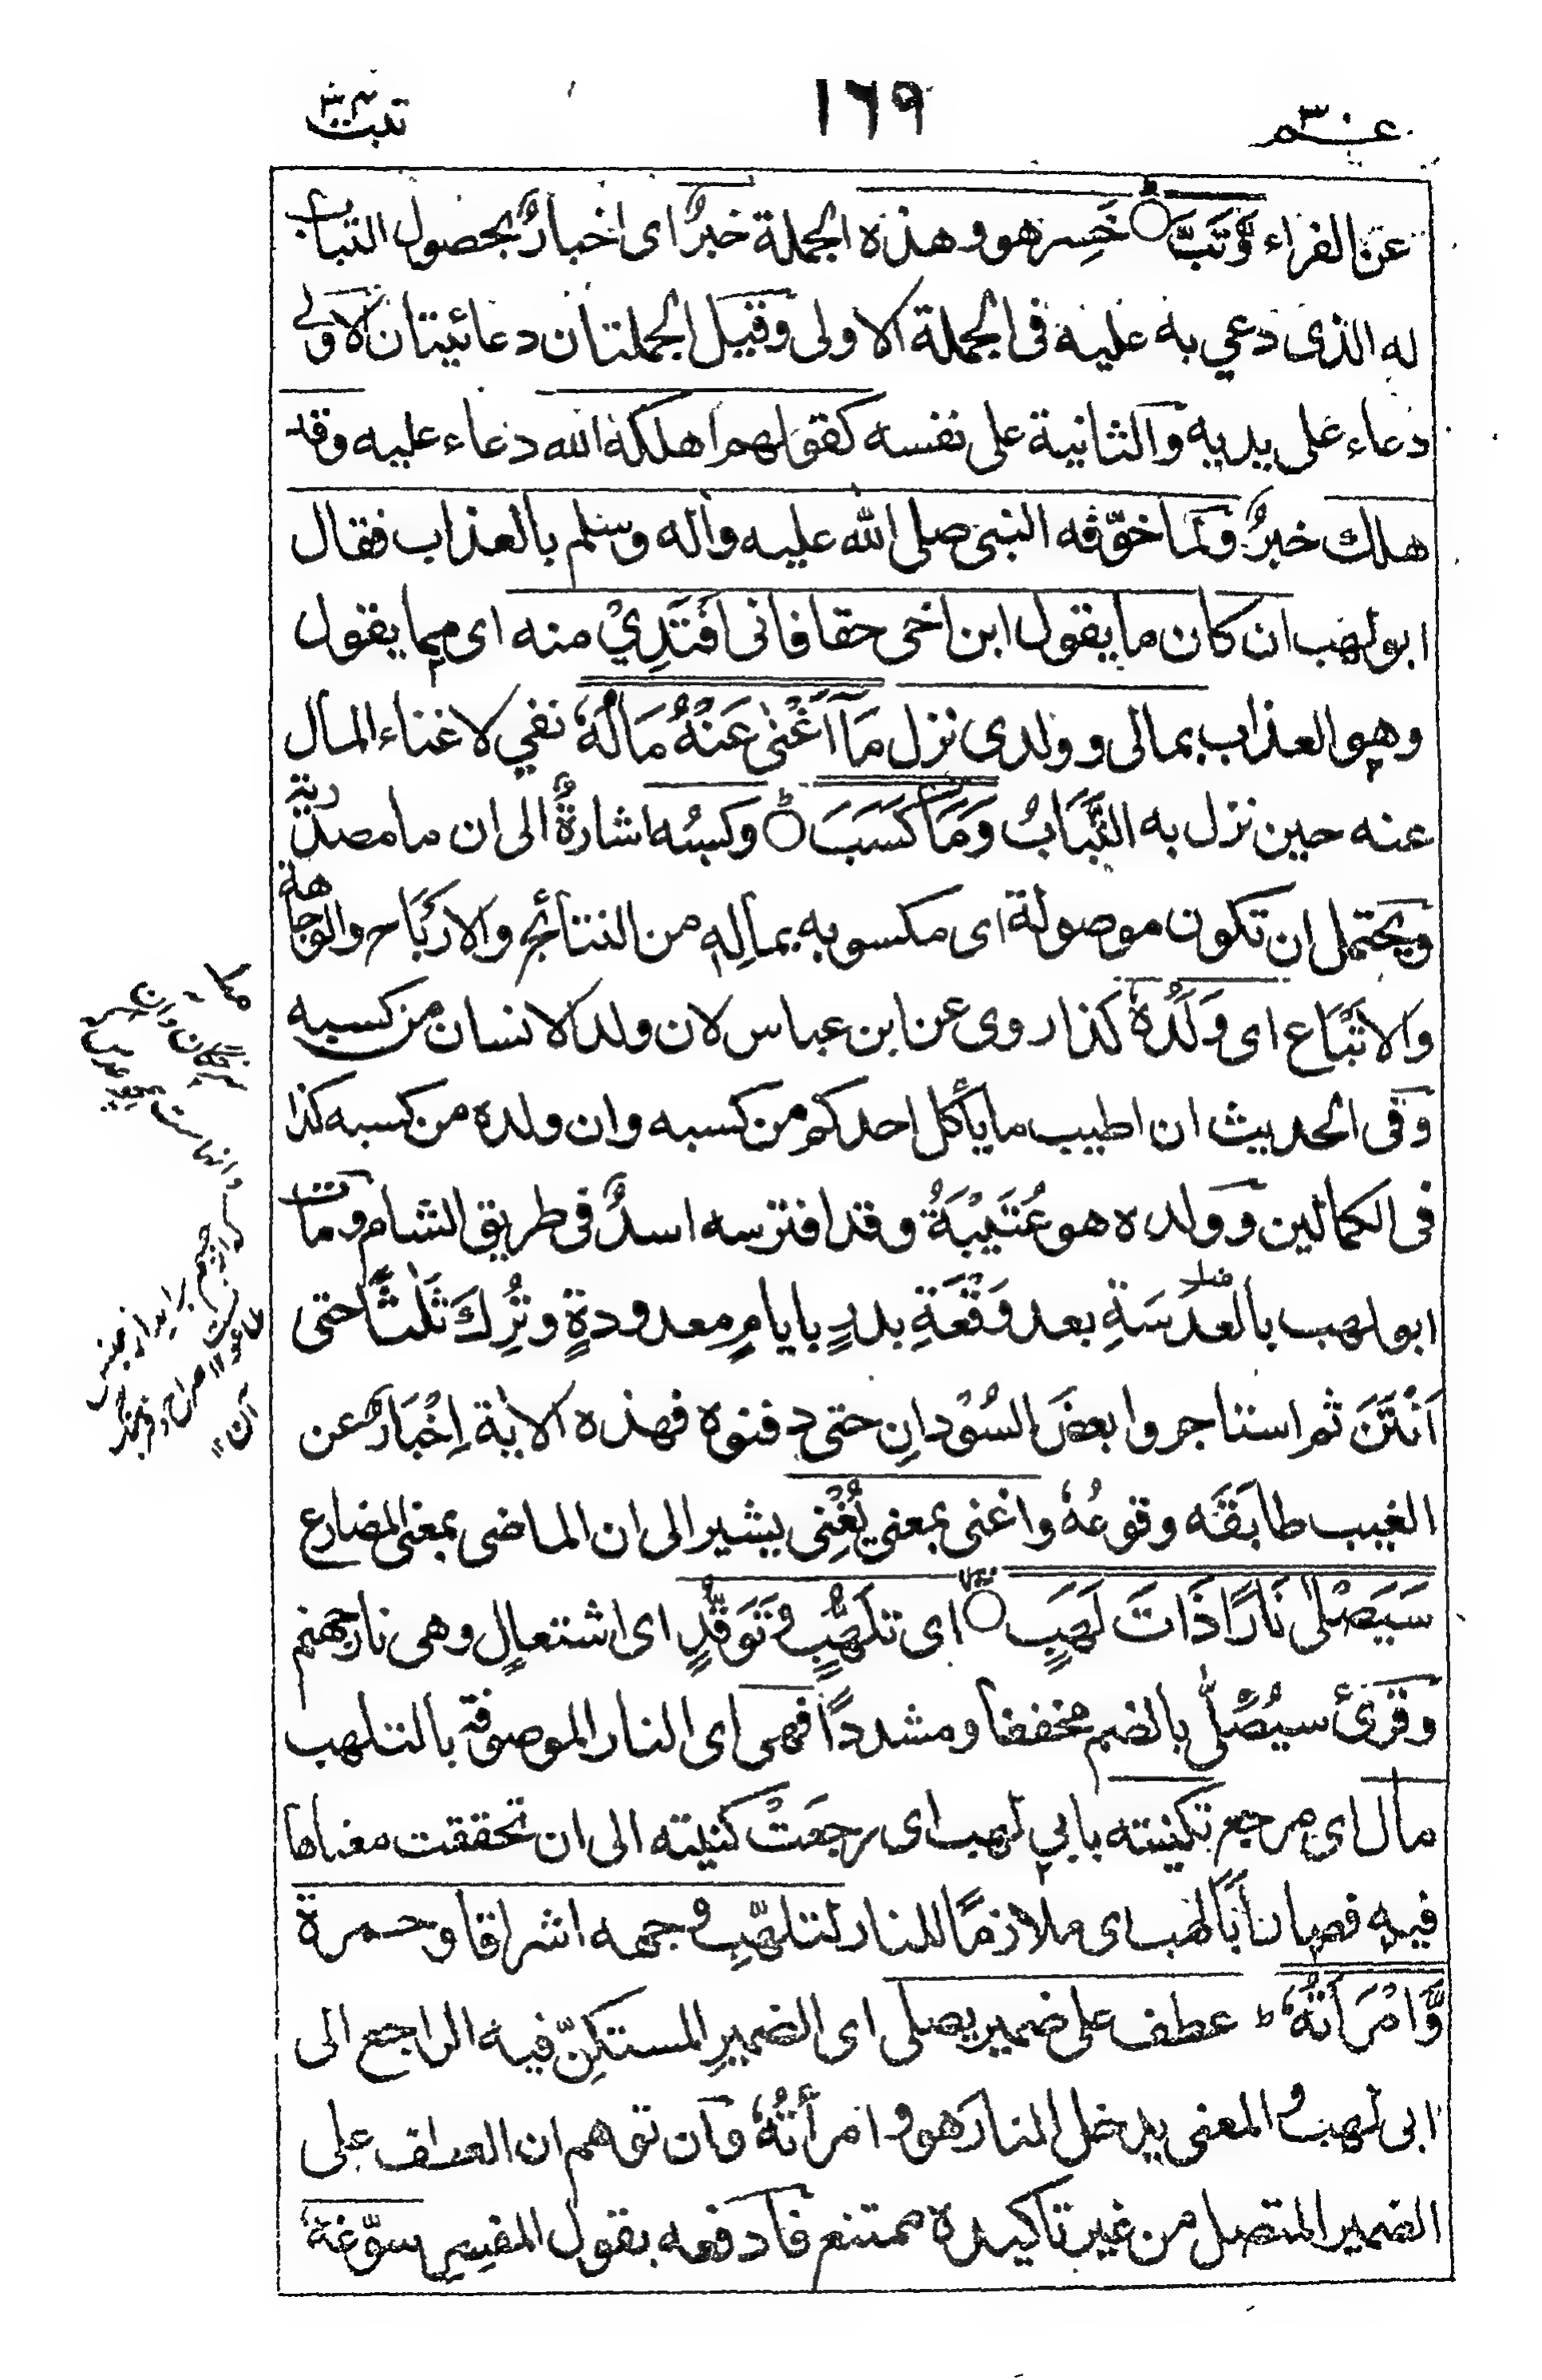 عم ٣٠
١٦٩
تبت
عن الفراء وَّتَبَّ خَسِر هو وهذه الجملة خبرٌ اى اخبارٌ بحصول التباب
له الذى دعي به عليه فى الجملة الاولى وقيل الجملتان دعائيتان الاولى
دعاء على يديه والثانية على نفسه كقولهم اهلكه الله دعاء عليه وقد
هلك خبرٌ ولمّا خوّفه النبى صلى الله عليه واله وسلم بالعذاب فقال
ابو لهب ان كان ما يقول ابن اخى حقا فانى اَفْتَدِيْ منه اى مما يقول
وهو العذاب بمالى وولدى نزل مَآ اَغْنٰى عَنْهُ مَالُهٗ نفي لاغناء المال
عنه حين نزل به التَّبَابُ وَمَا كَسَبَ وكسبُه اشارةٌ الى ان ما مصدرية
ويحتمل ان تكون موصولة اى مكسوبه بمالِهٖ من النتائج والارْبَاح والوجاهة
والاتْبَاع اى وَلَدُهٗ كذا روى عن ابن عباس لان ولد الانسان من كسبه
وفى الحديث ان اطيب ما يأكل احدكم من كسبه وان ولده من كسبه كذا
فى الكمالين وولده هو عُتَيْبَةُ وقد افترسه اسدٌ فى طريق الشام ومات
ابو لهب بالعَدَسَةِ بعد وَقْعَةِ بدرٍ بايامٍ معدودةٍ وتُرِكَ ثَلٰثًا حتى
اَنْتَنَ ثم استاجروا بعضَ السُوْدانِ حتى دفنوه فهذه الاية اِخْبَارٌ عن
الغيب طابَقَه وقوعُهٗ واغنى بمعنى يُغْنِى يشير الى ان الماضى بمعنى المضارع
سَيَصْلٰى نَارًا ذَاتَ لَهَبٍ اى تلَهُّبٍ وتَوَقُّدٍ اى اشتعالٍ وهى نار جهنم
وقرئ سيُصْلّٰى بالضم مخففا ومشددًا فهى اى النار الموصوفة بالتلهب
مآل اى مرجع تكنيته بابي لهب اى رجعَتْ كنيته الى ان تحققت معناها
فيه فصار اَبَا لهب اى ملازمًا للنار لتلهّبِ وجهه اشراقا وحمرة
وَّامْرَاَتُهٗ ط عطف على ضمير يصلى اى الضمير المستكِنّ فيه الراجع الى
ابى لهب والمعنى يدخل النار هو وامرأتُهٗ وان توهم ان العطف على
الضمير المتصل من غير تاكيده ممتنع فادفعه بقول المفسر سوّغهٗ